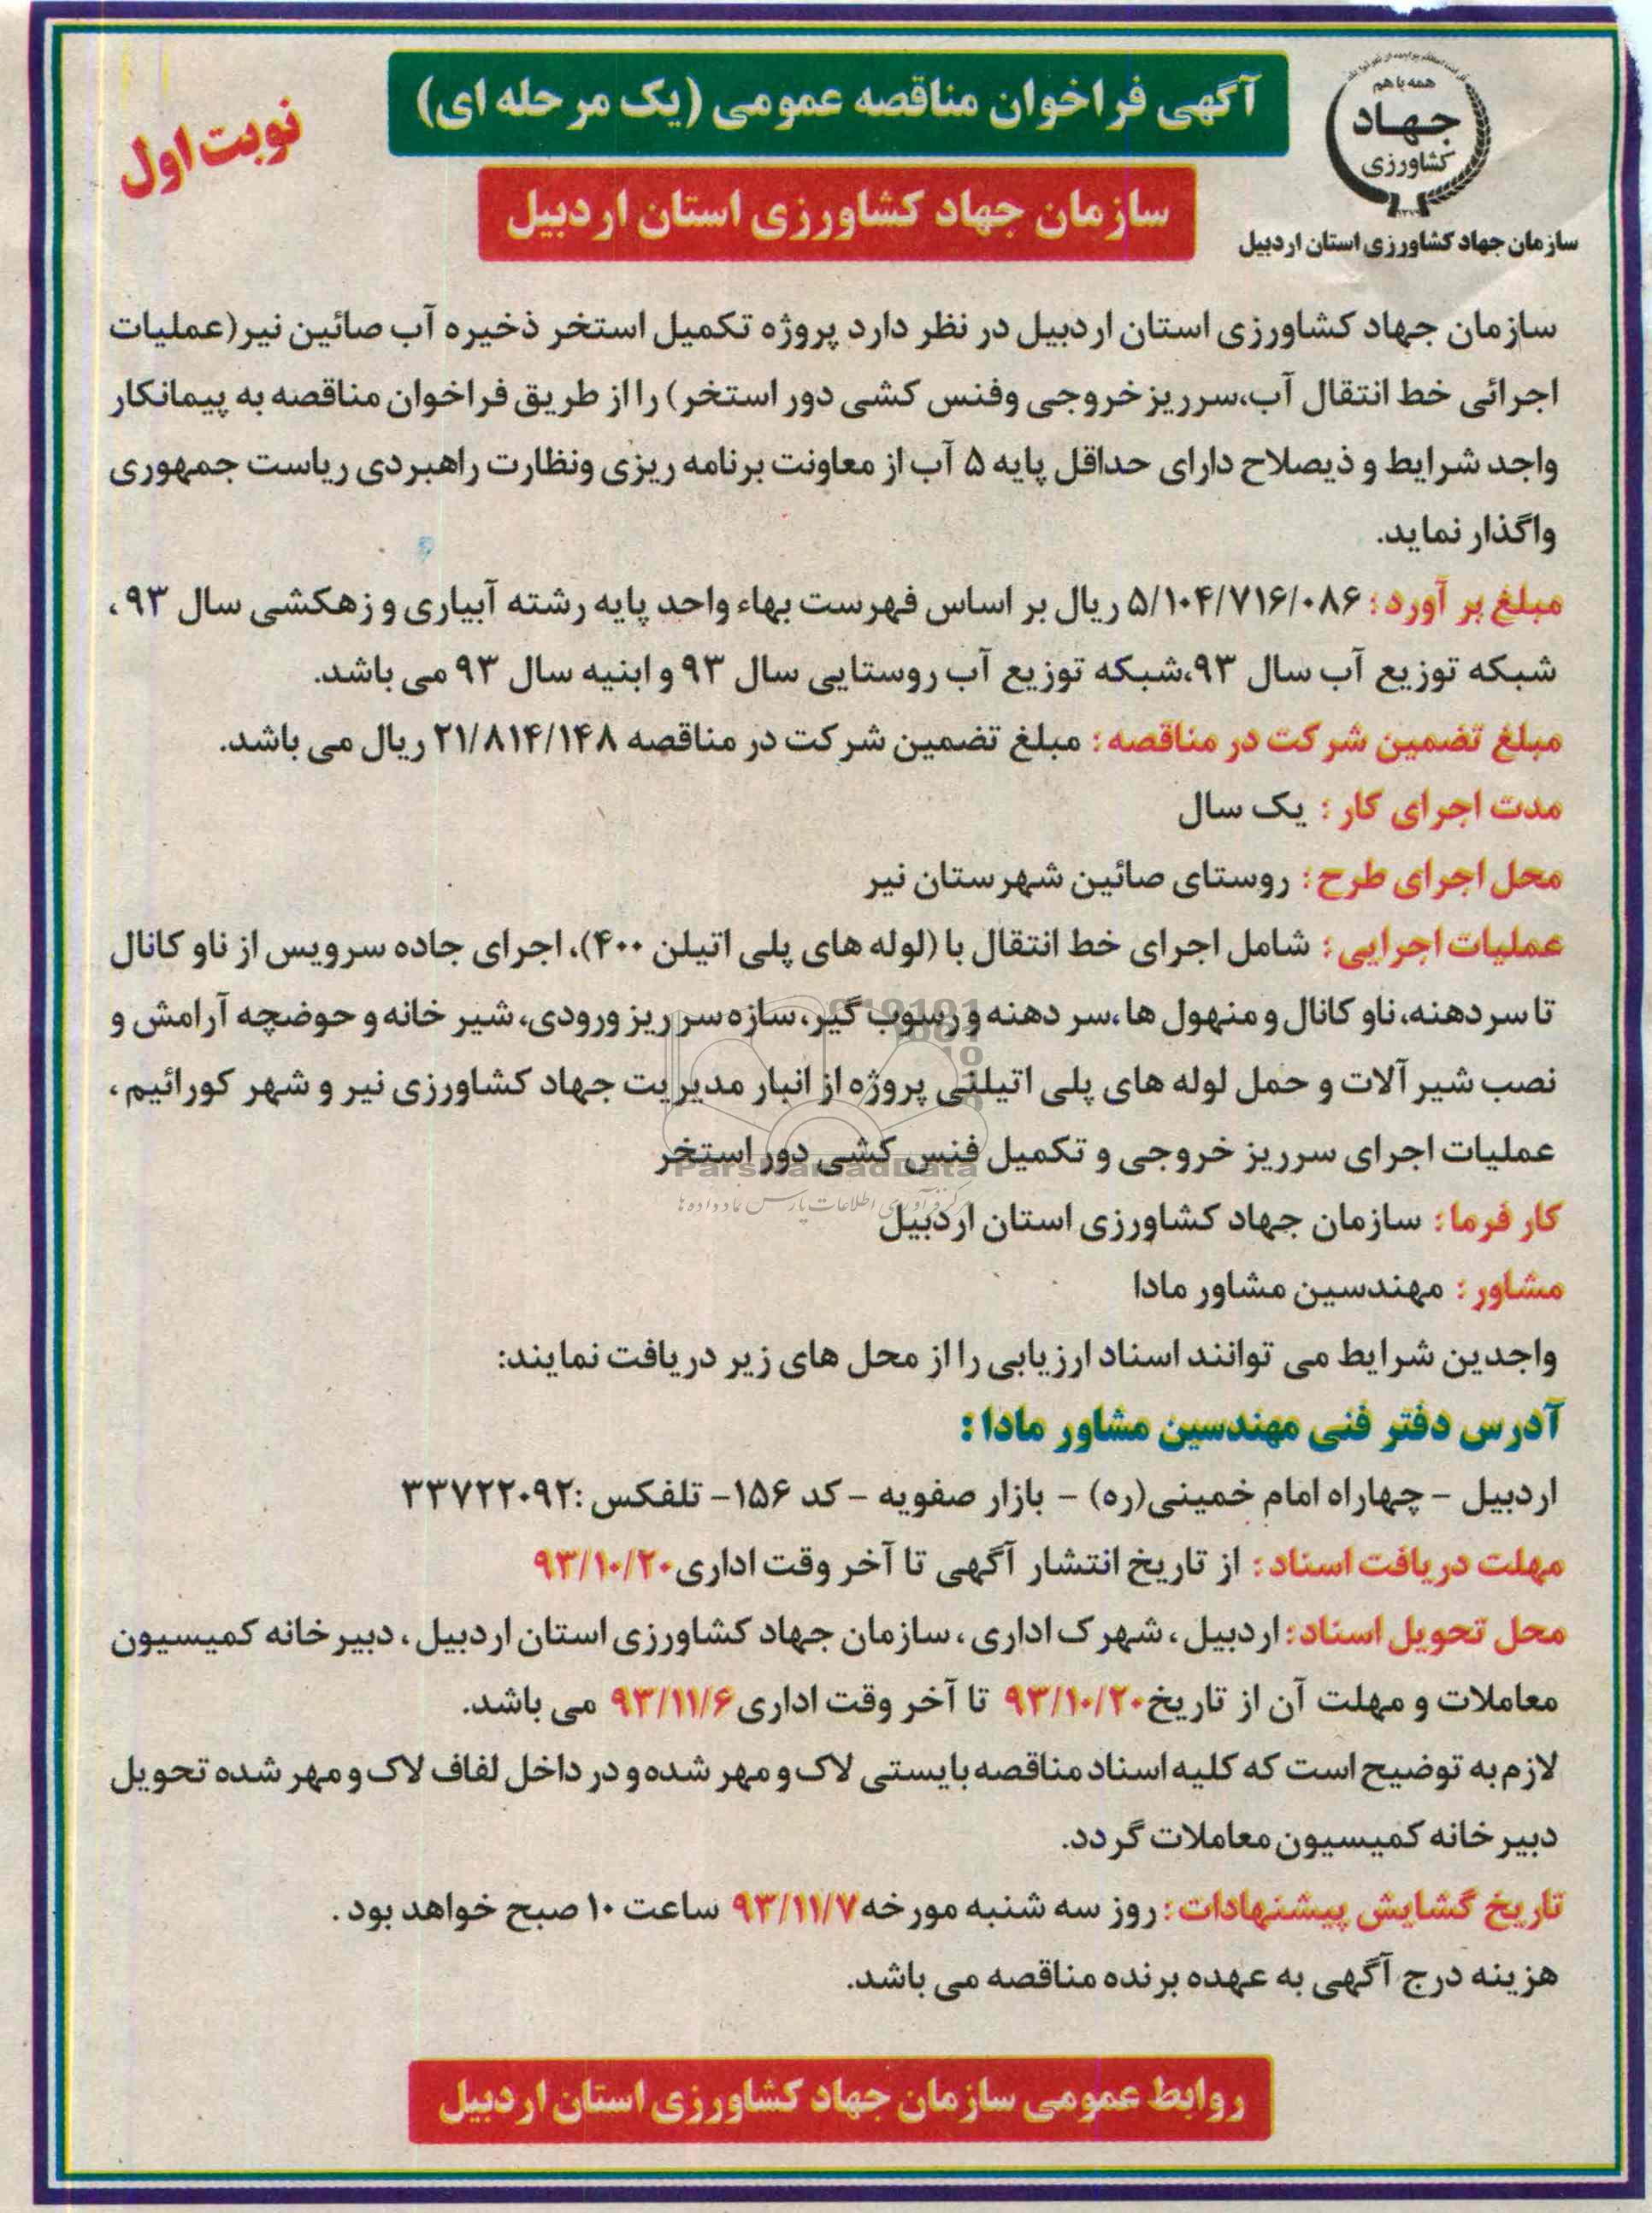 همه با هم
جهاد
کشاورزی
سازمان جهاد کشاورزی استان اردبیل
آگهی فراخوان مناقصه عمومی (یک مرحله ای)
سازمان جهاد کشاورزی استان اردبیل
نوبت اول
سازمان جهاد کشاورزی استان اردبیل در نظر دارد پروژه تکمیل استخر ذخیره آب صائین نیر(عملیات
اجرائی خط انتقال آب،سرریز خروجی وفنس کشی دور استخر) را از طریق فراخوان مناقصه به پیمانکار
واجد شرایط و ذیصلاح دارای حداقل پایه ۵ آب از معاونت برنامه ریزی ونظارت راهبردی ریاست جمهوری
واگذار نماید.
مبلغ بر آورد : ۵/۱۰۴/۷۱۶/۰۸۶ ریال بر اساس فهرست بهاء واحد پایه رشته آبیاری و زهکشی سال ۹۳ ،
شبکه توزیع آب سال ۹۳،شبکه توزیع آب روستایی سال ۹۳ و ابنیه سال ۹۳ می باشد.
مبلغ تضمین شرکت در مناقصه : مبلغ تضمین شرکت در مناقصه ۲۱/۸۱۴/۱۴۸ ریال می باشد.
مدت اجرای کار : یک سال
محل اجرای طرح : روستای صائین شهرستان نیر
عملیات اجرایی : شامل اجرای خط انتقال با (لوله های پلی اتیلن ۴۰۰)، اجرای جاده سرویس از ناو کانال
تا سر دهنه، ناو کانال و منهول ها ،سر دهنه و رسوب گیر، سازه سر ریز ورودی، شیر خانه و حوضچه آرامش و
نصب شیر آلات و حمل لوله های پلی اتیلنی پروژه از انبار مدیریت جهاد کشاورزی نیر و شهر کورائیم ،
عملیات اجرای سرریز خروجی و تکمیل فنس کشی دور استخر
ParsNamadData
مرکز فرآوری اطلاعات پارس نماد داده ها
کار فرما : سازمان جهاد کشاورزی استان اردبیل
مشاور : مهندسین مشاور مادا
واجدین شرایط می توانند اسناد ارزیابی را از محل های زیر دریافت نمایند:
آدرس دفتر فنی مهندسین مشاور مادا :
اردبیل - چهاراه امام خمینی(ره) - بازار صفویه - کد ۱۵۶- تلفکس :۳۳۷۲۲۰۹۲
مهلت دریافت اسناد : از تاریخ انتشار آگهی تا آخر وقت اداری ۹۳/۱۰/۲۰
محل تحویل اسناد : اردبیل ، شهرک اداری ، سازمان جهاد کشاورزی استان اردبیل ، دبیرخانه کمیسیون
معاملات و مهلت آن از تاریخ ۹۳/۱۰/۲۰ تا آخر وقت اداری ۹۳/۱۱/۶ می باشد.
لازم به توضیح است که کلیه اسناد مناقصه بایستی لاک و مهر شده و در داخل لفاف لاک و مهر شده تحویل
دبیرخانه کمیسیون معاملات گردد.
تاریخ گشایش پیشنهادات : روز سه شنبه مورخه ۹۳/۱۱/۷ ساعت ۱۰ صبح خواهد بود .
هزینه درج آگهی به عهده برنده مناقصه می باشد.
روابط عمومی سازمان جهاد کشاورزی استان اردبیل